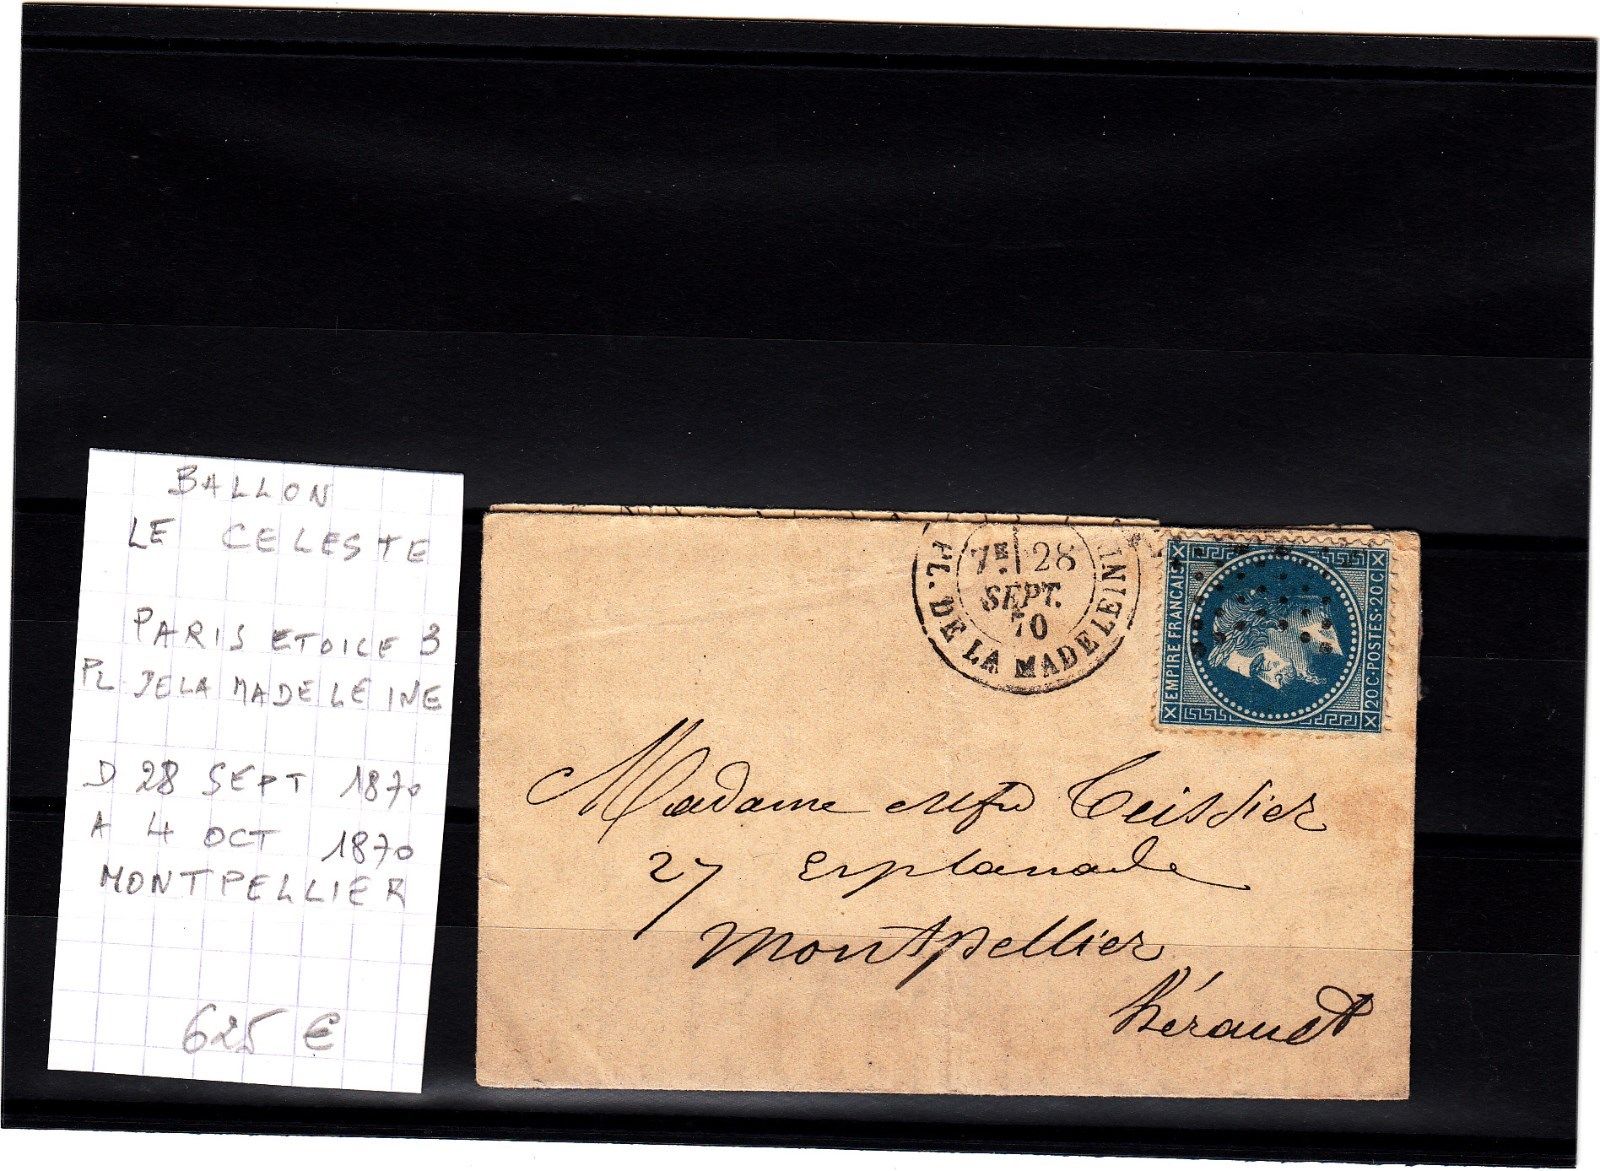 BALLON
LE CELESTE
PARIS ETOILE 3
PL DE LA MADELEINE
D 28 SEPT 1870
A 4 OCT 1870
MONTPELLIER
625 €
PL. DE LA MADELEINE
7E 28
SEPT.
70
EMPIRE FRANCAIS
20C·POSTES·20C
Madame Teissier
27 Esplanade
Montpellier
Hérault